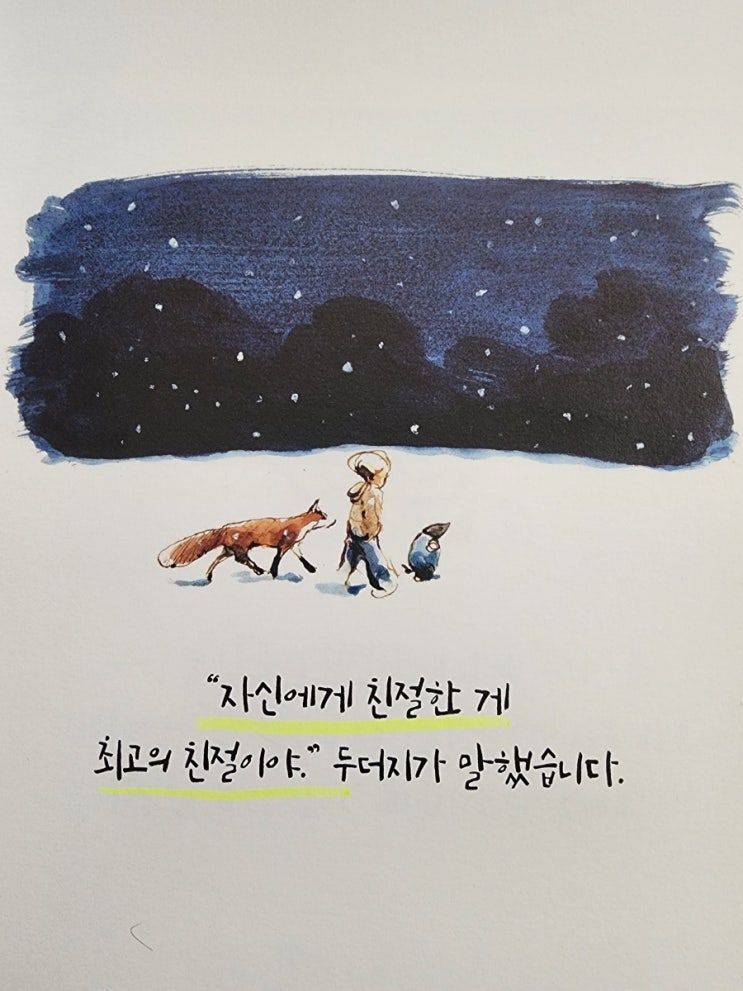 “자신에게 친절한 게
최고의 친절이야.” 두더지가 말했습니다.